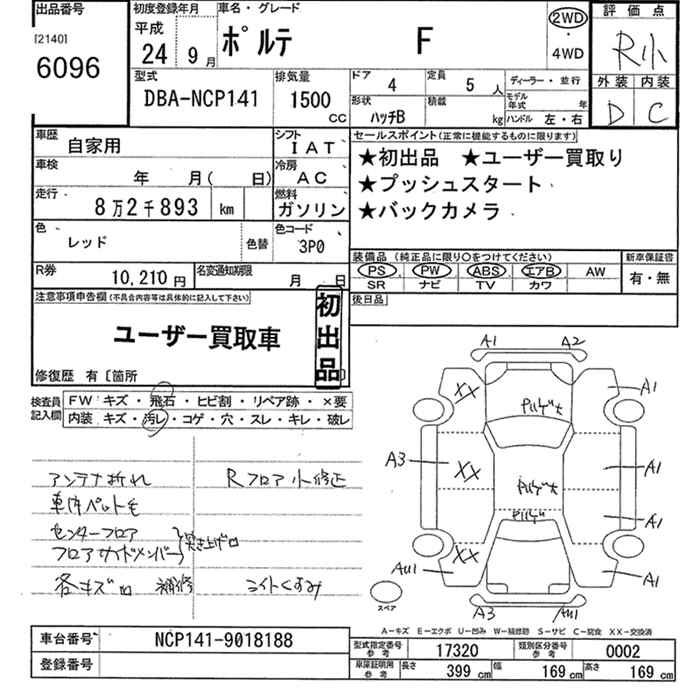 出品番号
[2140]
6096
初度登録年月
平成
24 9 月
車名・グレード
ポルテ F
2WD
・
4WD
評価点
R小
外装 内装
D C
型式
DBA-NCP141
排気量
1500
CC
ドア 4
定員 5 人
ディーラー・並行
形状 ハッチB
積載 kg
モデル年式 年
ハンドル 左・右
車歴 自家用
シフト IAT
車検 年 月( 日)
冷房 AC
走行 8万2千893 km
燃料 ガソリン
色 レッド 色替
色コード 3P0
R券 10,210円
名変通知期限 月 日
セールスポイント(正常に機能するものに限ります)
★初出品 ★ユーザー買取り
★プッシュスタート
★バックカメラ
装備品(純正品に限り○をつけてください)
PS PW ABS エアB AW
SR ナビ TV カワ
新車保証書
有・無
後日品
注意事項申告欄(不具合内容等は具体的に記入して下さい)
ユーザー買取車
初出品
修復歴 有〔箇所
検査員記入欄
FW キズ・飛石・ヒビ割・リペア跡・×要
内装 キズ・汚レ・コゲ・穴・スレ・キレ・破レ
アンテナ折れ
Rフロア小修正
車内ペット毛
センターフロア
フロアサイドメンバー
突き上げ
各キズ 補修
ライトくすみ
A1 A2
XX A1
ｱﾄﾊｹﾞ大
A3 XX A1
ｱﾄﾊｹﾞ大
A1
XX
AU1 A1
A3 AU1
スペア
A－キズ E－エクボ U－凹み W－補修跡 S－サビ C－腐食 XX－交換済
車台番号 NCP141-9018188
登録番号
型式指定番号 参考 17320
類別区分番号 参考 0002
車庫証明用 参考 長さ 399 cm 幅 169 cm 高さ 169 cm